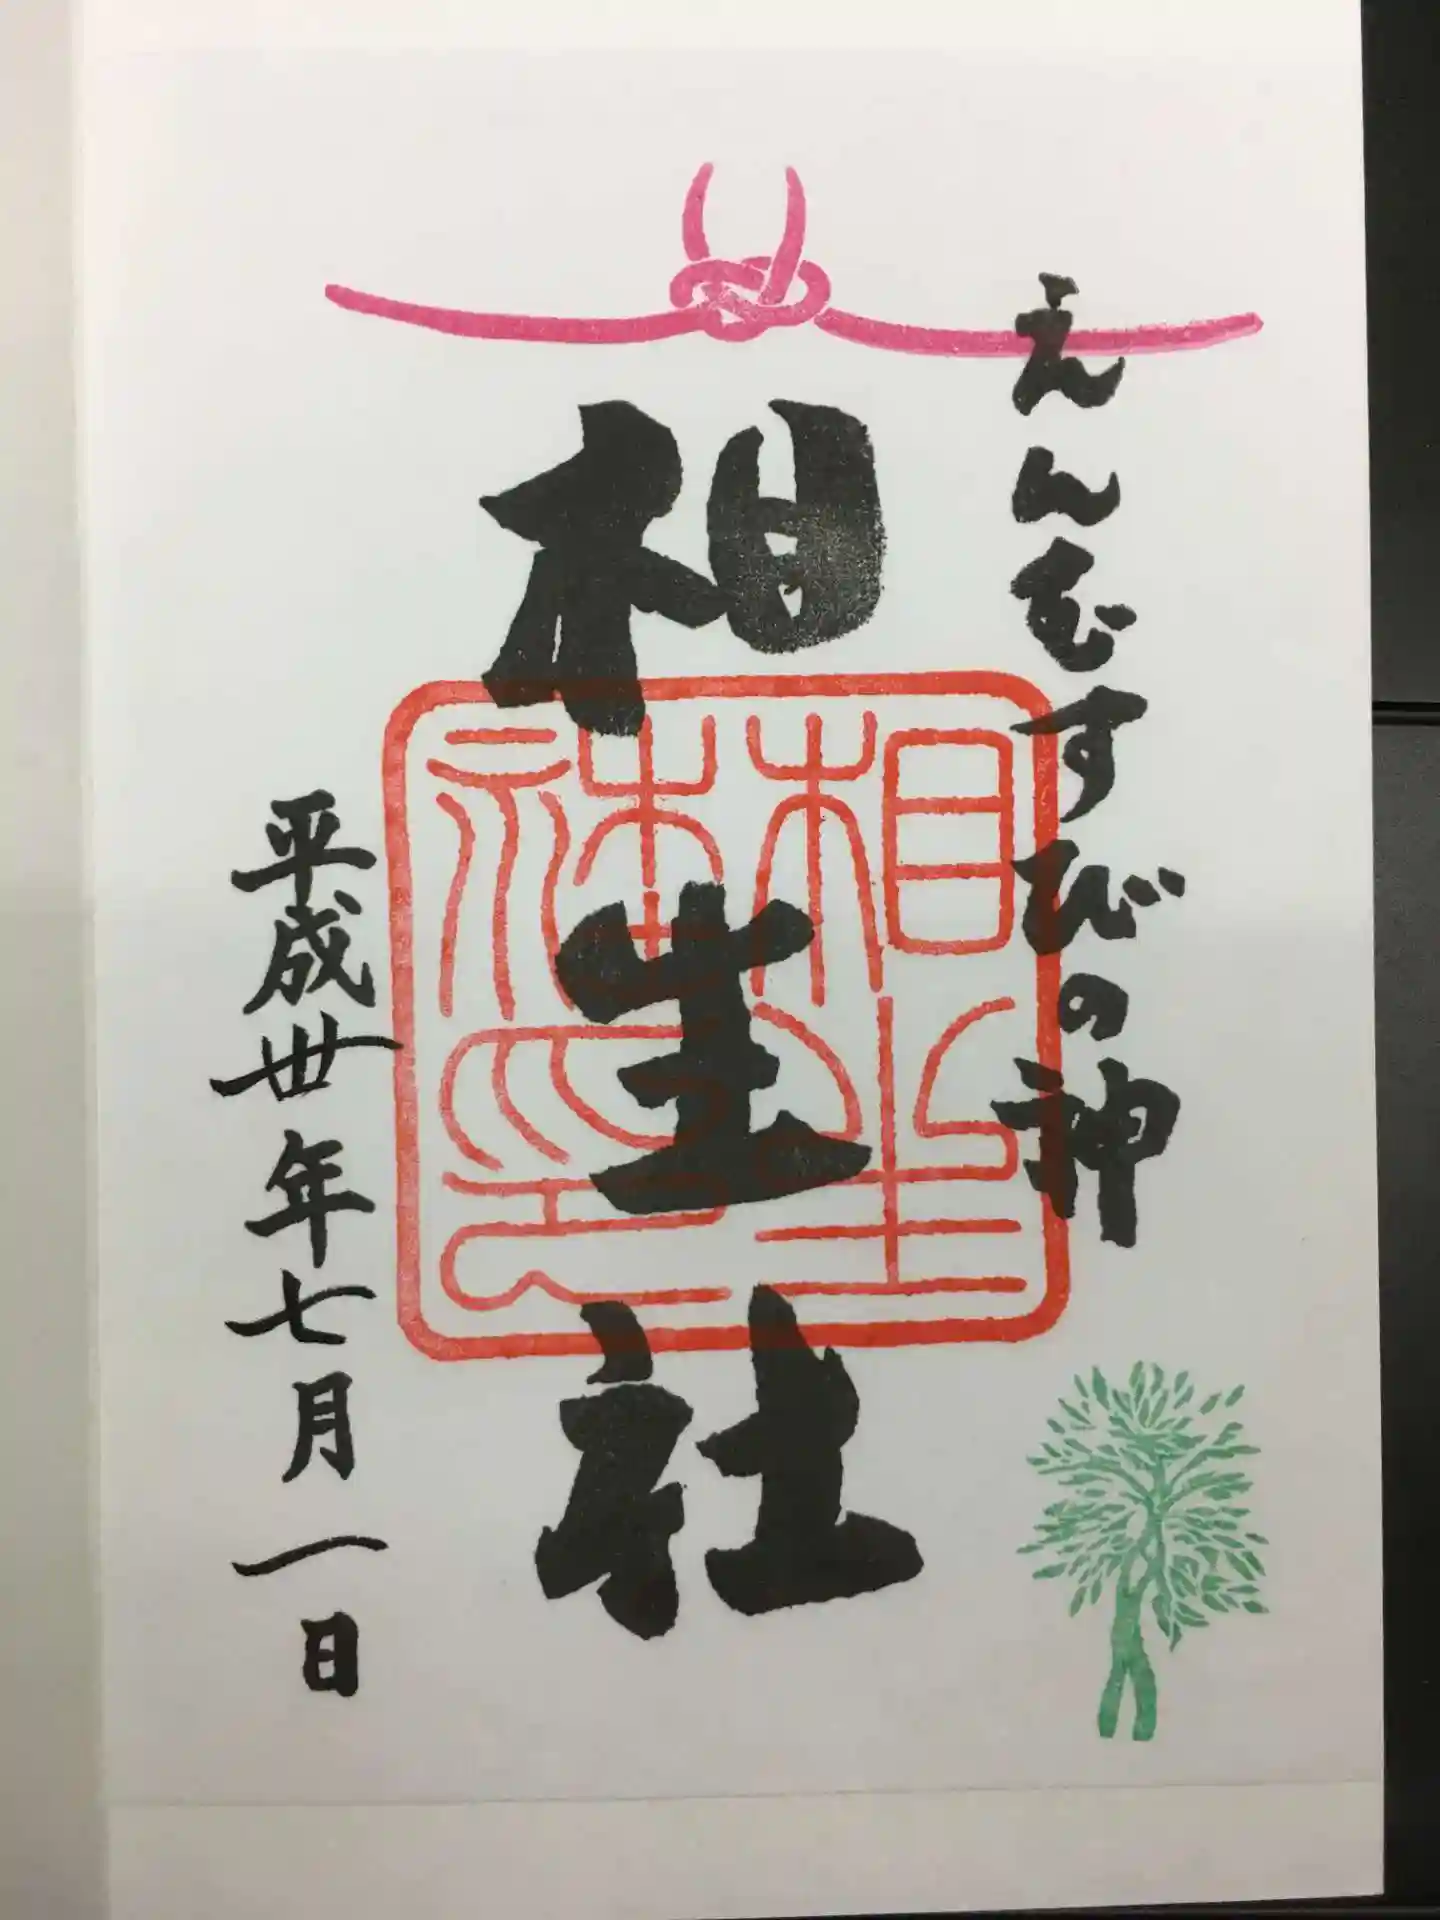 えんむすびの神
相生社
相生社之印
平成卅年七月一日